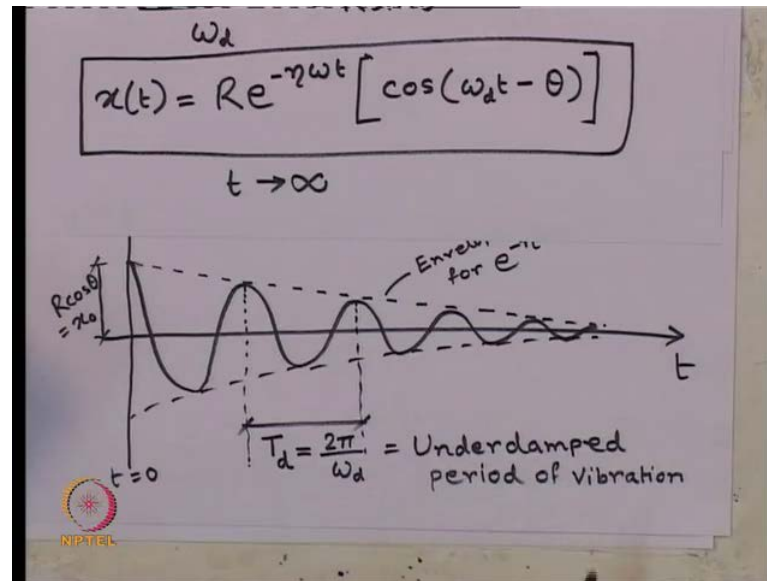 ωd
x(t) = Re^{-ηωt} [cos(ωdt - θ)]
t → ∞
for e
Rcosθ
= x₀
t
t = 0
Td = 2π/ωd = Underdamped
period of vibration
NPTEL